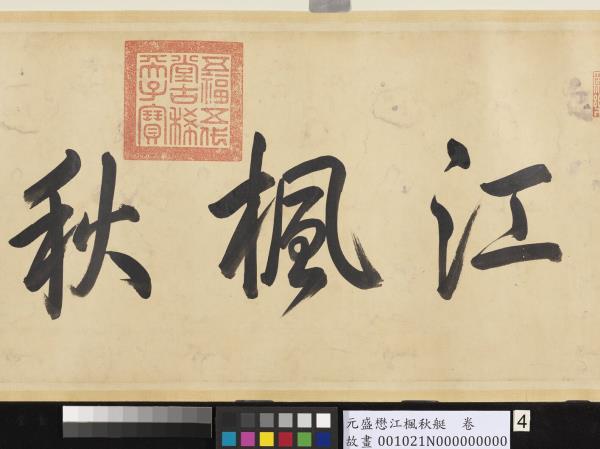 江楓秋
五福五代
堂古稀
天子寶
元盛懋江楓秋艇 卷
故畫 001021N000000000
4